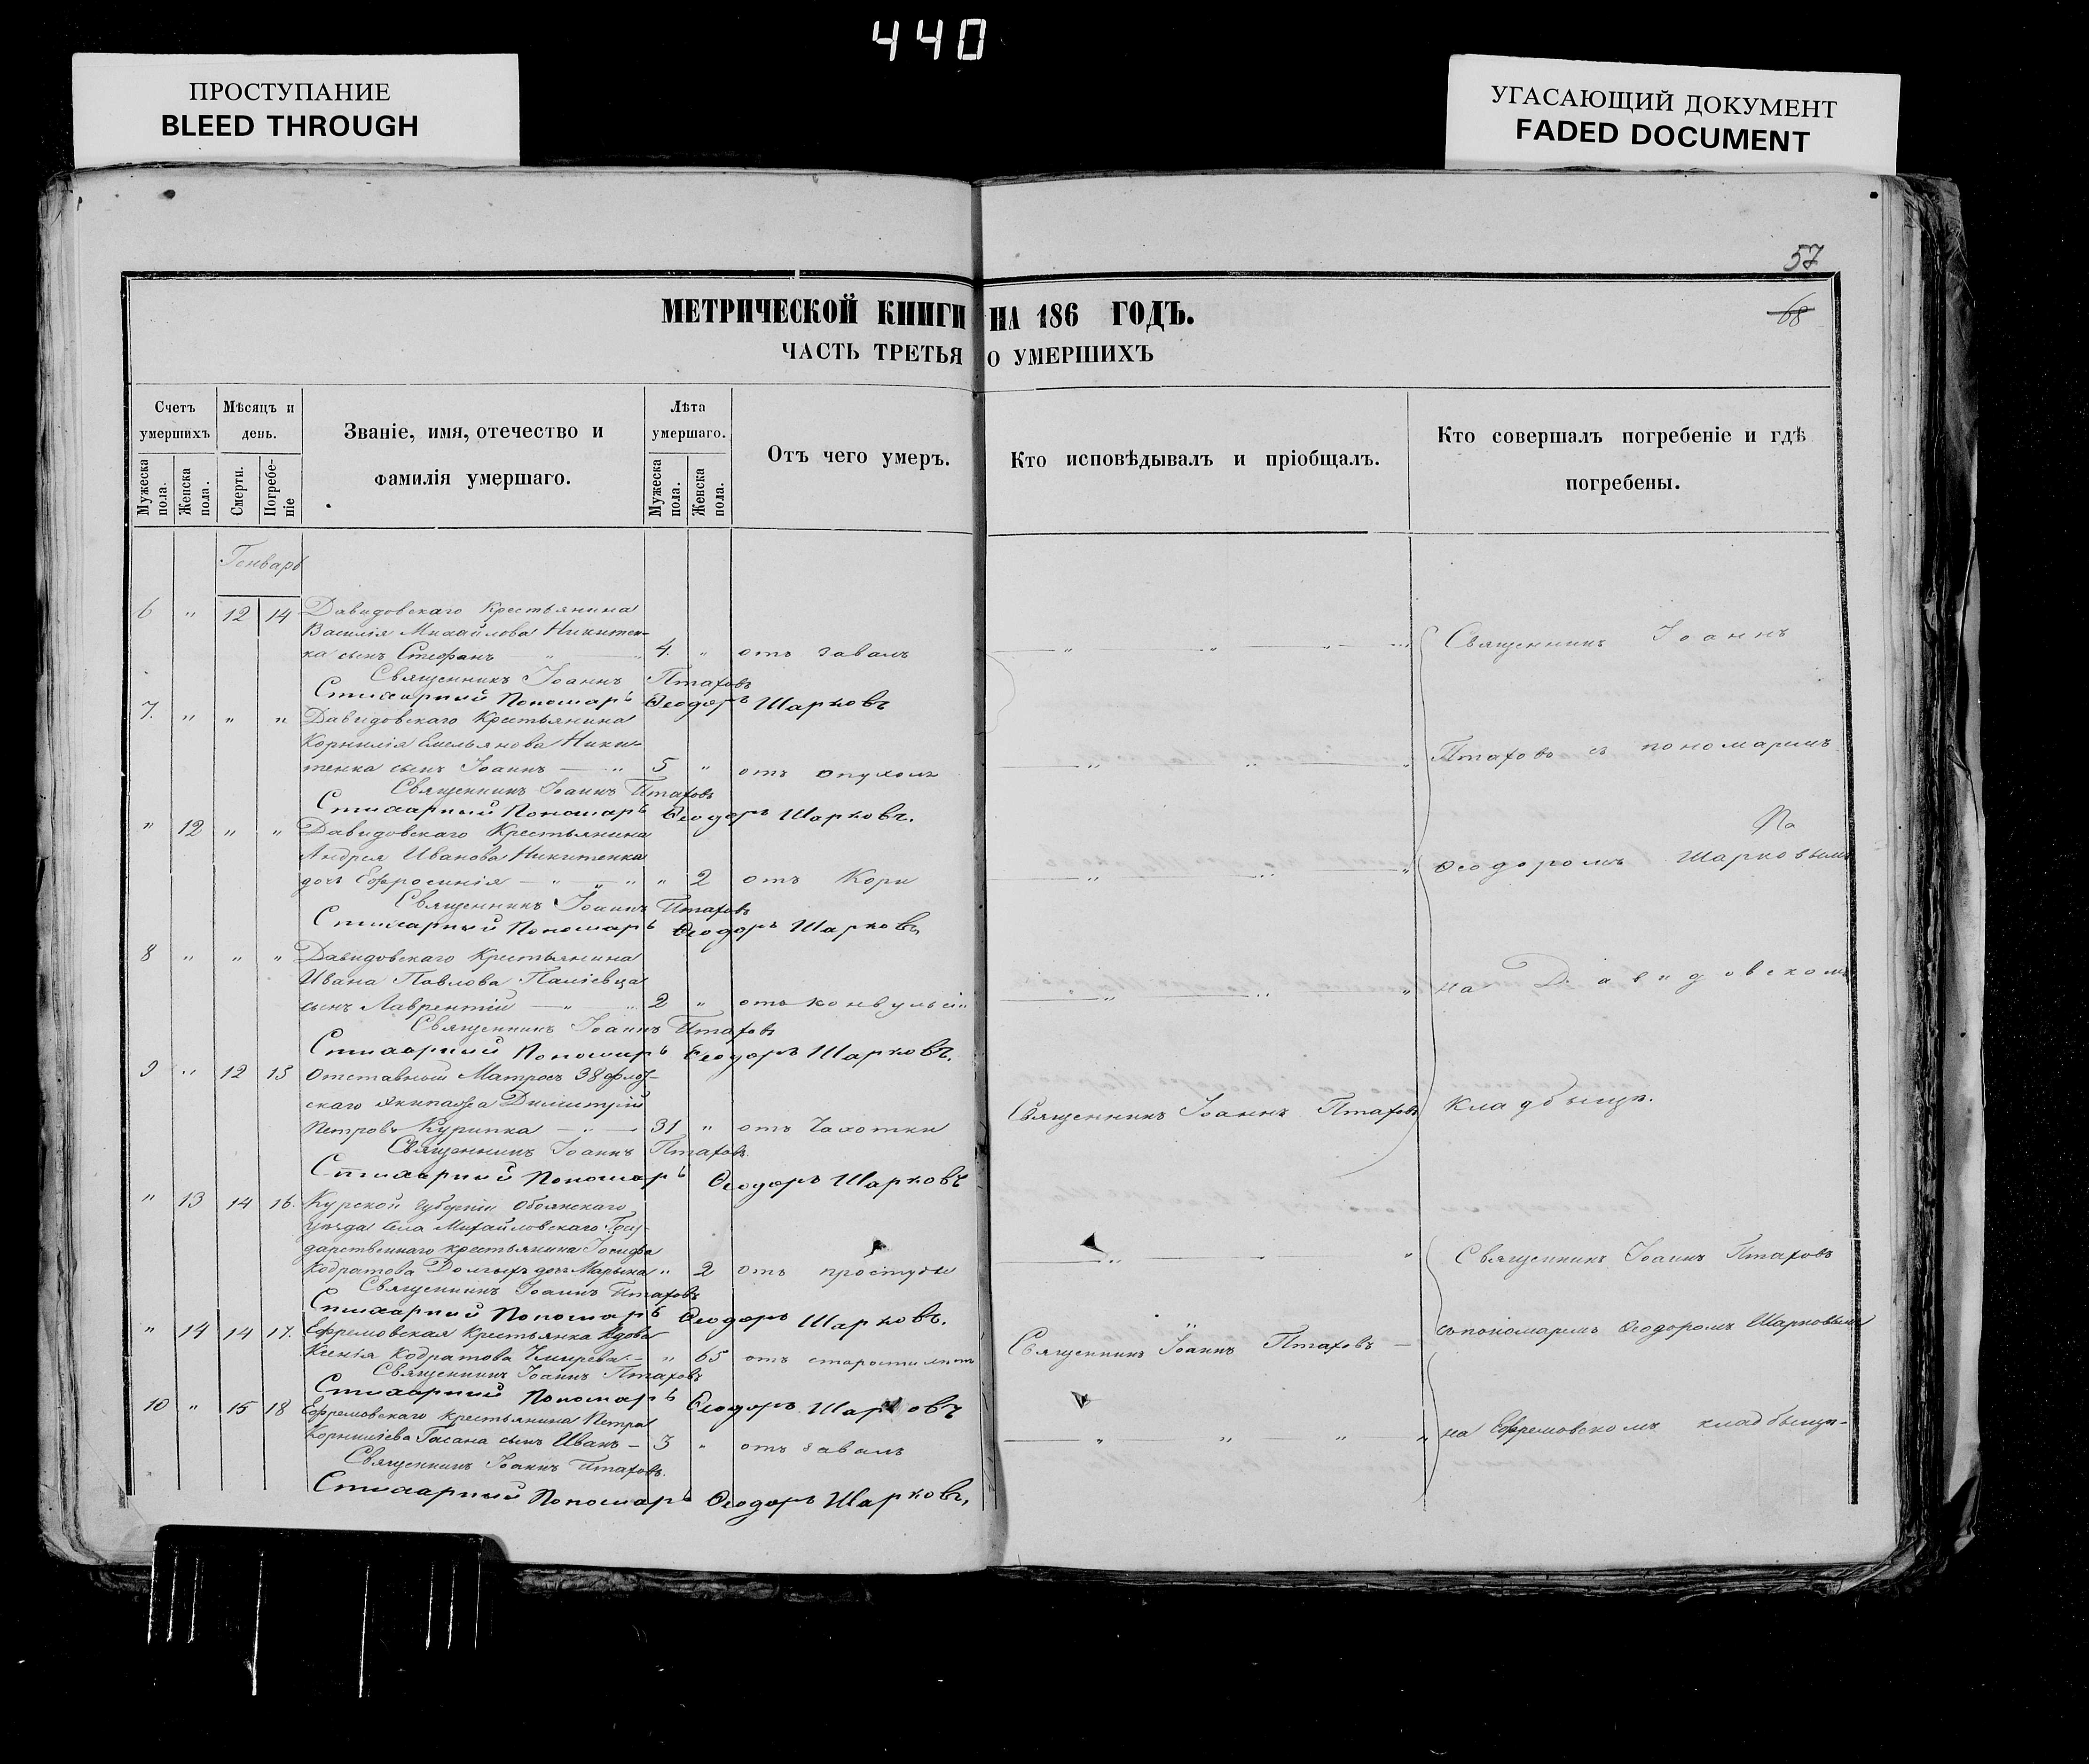 440
ПРОСТУПАНИЕ
BLEED THROUGH
УГАСАЮЩИЙ ДОКУМЕНТ
FADED DOCUMENT
57
68
МЕТРИЧЕСКОЙ КНИГИ НА 186 ГОДЪ.
ЧАСТЬ ТРЕТЬЯ О УМЕРШИХЪ
Счетъ умершихъ
Мужеска пола.
Женска пола.
Мѣсяцъ и день.
Смерти.
Погребе-ніе
Званіе, имя, отечество и
фамилія умершаго.
Лѣта умершаго.
Мужеска пола.
Женска пола.
Отъ чего умеръ.
Кто исповѣдывалъ и пріобщалъ.
Кто совершалъ погребеніе и гдѣ
погребены.
Генварь
6 " 12 14 Давидовскаго Крестьянина
Василія Михайлова Никитен-
ка сынъ Стефанъ 4. " отъ завалъ
Священникъ Іоаннъ Птаховъ
Стихарный Пономарь Ѳеодоръ Шарковъ
7. " " " Давидовскаго Крестьянина
Корнилія Емельянова Ники-
тенка сынъ Іоаннъ 5 " отъ опухоли
Священникъ Іоаннъ Птаховъ
Стихарный Пономарь Ѳеодоръ Шарковъ.
" 12 " " Давидовскаго Крестьянина
Андрея Иванова Никитенка
дочь Ефросинія " 2 отъ Кори
Священникъ Іоаннъ Птаховъ
Стихарный Пономарь Ѳеодоръ Шарковъ
8 " " " Давидовскаго Крестьянина
Ивана Павлова Паліевца
сынъ Лаврентій 2 " отъ конвульсіи
Священникъ Іоаннъ Птаховъ
Стихарный Пономарь Ѳеодоръ Шарковъ.
9 " 12 15 Отставный Матросъ 38 флот-
скаго Экипажа Димитрій
Петровъ 31 " отъ Чахотки
Священникъ Іоаннъ Птаховъ
Священникъ Іоаннъ Птаховъ.
Стихарный Пономарь Ѳеодоръ Шарковъ
" 13 14 16. Курской Губерніи Обоянскаго
уѣзда села Михайловскаго Госу-
дарственнаго крестьянина Іосифа
Кодратова Долгихъ дочь Марьяна " 2 отъ простуды
Священникъ Іоаннъ Птаховъ
Стихарный Пономарь Ѳеодоръ Шарковъ.
" 14 14 17. Ефремовская Крестьянка Вдова
Ксенія Кодратова " 65 отъ старости лѣтъ
Священникъ Іоаннъ Птаховъ
Священникъ Іоаннъ Птаховъ
Стихарный Пономарь Ѳеодоръ Шарковъ
10 " 15 18 Ефремовскаго крестьянина Петра
Корниліева сынъ Иванъ 3 " отъ завалъ
Священникъ Іоаннъ Птаховъ.
Стихарный Пономарь Ѳеодоръ Шарковъ,
Священникъ Іоаннъ
Птаховъ съ пономаремъ
Ѳеодоромъ Шарковымъ
на Давидовскомъ
Кладбищѣ.
Священникъ Іоаннъ Птаховъ
съ пономаремъ Ѳеодоромъ Шарковымъ
на Ефремовскомъ кладбищѣ